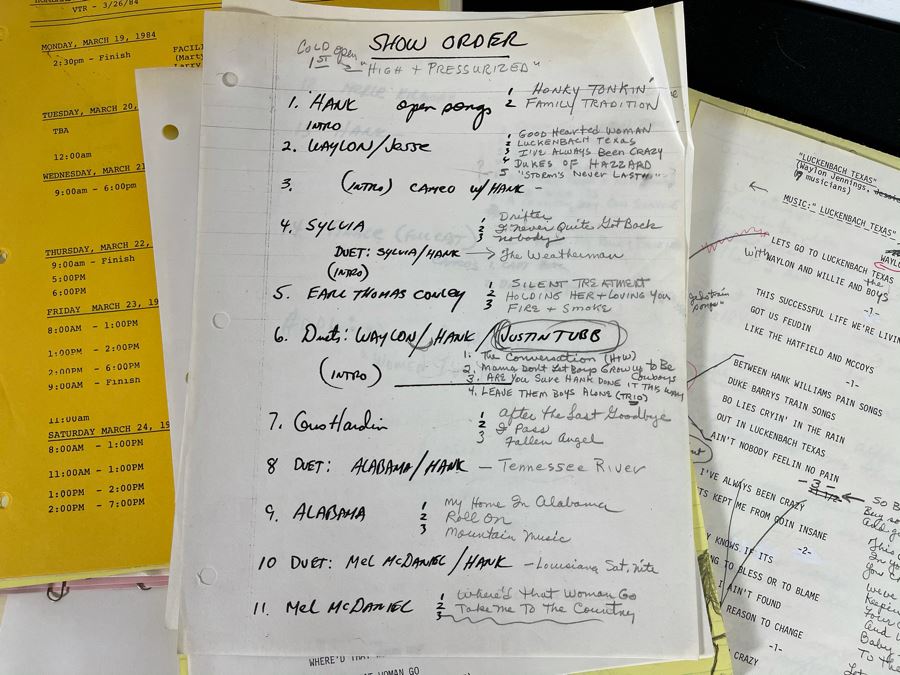 VTR - 3/26/84
MONDAY, MARCH 19, 1984
2:30pm - Finish
FACILI
(Marty
Larry
TUESDAY, MARCH 20,
TBA
12:00am
WEDNESDAY, MARCH 21
9:00am - 6:00pm
THURSDAY, MARCH 22,
9:00am - Finish
5:00PM
6:00PM
FRIDAY, MARCH 23, 19
8:00AM - 1:00PM
1:00PM - 2:00PM
2:00PM - 6:00PM
9:00AM - Finish
11:00am
SATURDAY MARCH 24, 19
8:00AM - 1:00PM
11:00AM - 1:00PM
1:00PM - 2:00PM
2:00PM - 7:00PM
SHOW ORDER
COLD open
1ST "HIGH + PRESSURIZED"
1. HANK open songs 1 HONKY TONKIN'
2 FAMILY TRADITION
INTRO
2. WAYLON/Jesse 1 GOOD HEARTED WOMAN
2 LUCKENBACH TEXAS
3 I'VE ALWAYS BEEN CRAZY
4 DUKES OF HAZZARD
5 "STORM'S NEVER LAST"
3. (INTRO) CAMEO W/HANK -
4. SYLVIA 1 Drifter
2 I Never Quite Got Back
3 nobody
DUET: SYLVIA/HANK → The Weatherman
(INTRO)
5. EARL THOMAS CONLEY 1 SILENT TREATMENT
2 HOLDING HER + LOVING YOU
3 FIRE + SMOKE
6. Duets: WAYLON/HANK/JUSTIN TUBB
(INTRO) 1. The Conversation (H+W)
2. Mama Don't Let Boys GROW UP to BE COWBOYS
3. ARE YOU SURE HANK DONE IT THIS WAY
4. LEAVE THEM BOYS ALONE (TRIO)
7. Gus Hardin 1 After the Last Goodbye
2 I Pass
3 Fallen Angel
8 DUET: ALABAMA/HANK - Tennessee River
9. ALABAMA 1 my Home In Alabama
2 Roll On
3 Mountain Music
10 DUET: MEL McDANIEL/HANK - Louisiana Sat. Nite
11. MEL McDANIEL 1 Where'd That Woman Go
2 Take me To The Country
3
"LUCKENBACH TEXAS"
(Waylon Jennings,
musicians)
MUSIC: "LUCKENBACH TEXAS"
WAYLON
LETS GO TO LUCKENBACH TEXAS
With WAYLON AND WILLIE AND the BOYS
-1-
THIS SUCCESSFUL LIFE WE'RE LIVIN
GOT US FEUDIN
LIKE THE HATFIELD AND MCCOYS
-1-
BETWEEN HANK WILLIAMS PAIN SONGS
DUKE BARRYS TRAIN SONGS
BO LIES CRYIN' IN THE RAIN
OUT IN LUCKENBACH TEXAS
AIN'T NOBODY FEELIN NO PAIN
- 3 -
I'VE ALWAYS BEEN CRAZY
TS KEPT ME FROM GOIN INSANE
-2-
Y KNOWS IF ITS
NG TO BLESS OR TO BLAME
I AIN'T FOUND
REASON TO CHANGE
-1-
CRAZY
WHERE'D THAT
WOMAN GO